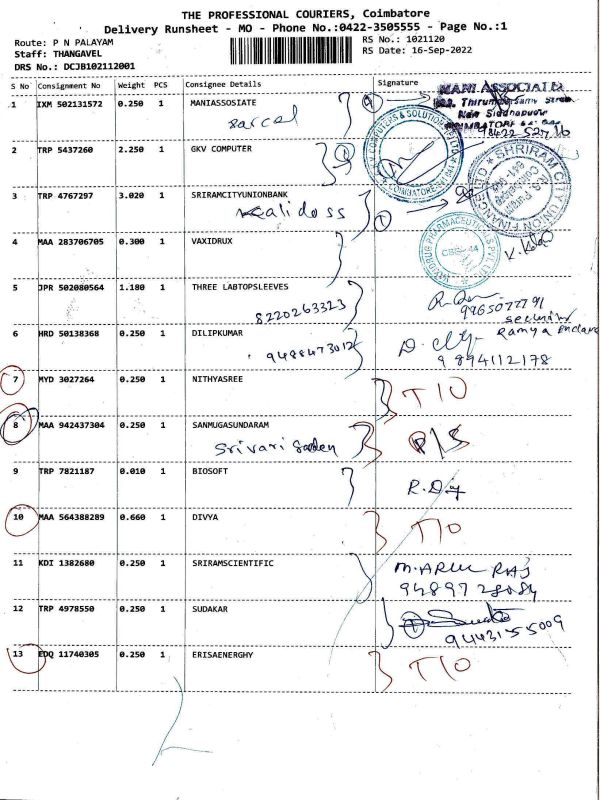 THE PROFESSIONAL COURIERS, Coimbatore
Delivery Runsheet - MO - Phone No.:0422-3505555 - Page No.:1
Route: P N PALAYAM
RS No.: 1021120
Staff: THANGAVEL
RS Date: 16-Sep-2022
DRS No.: DCJB102112001
S No Consignment No Weight PCS Consignee Details Signature
1 IXM 502131572 0.250 1 MANIASSOSIATE
MANI ASSOCIATES
2 TRP 5437260 2.250 1 GKV COMPUTER
3 TRP 4767297 3.020 1 SRIRAMCITYUNIONBANK
SHRIRAM CITY UNION FINANCE
Kalidoss
4 MAA 283706705 0.300 1 VAXIDRUX
5 JPR 502080564 1.180 1 THREE LABTOPSLEEVES
8220263323
9965077791
security
Ramya Enclave
6 HRD 50138368 0.250 1 DILIPKUMAR
9488473012
9894112178
7 MYD 3027264 0.250 1 NITHYASREE
T/O
8 MAA 942437304 0.250 1 SANMUGASUNDARAM
Srivari
P/S
9 TRP 7821187 0.010 1 BIOSOFT
10 MAA 564388289 0.660 1 DIVYA
T/O
11 KDI 1382680 0.250 1 SRIRAMSCIENTIFIC
M. ARUL RAJ
9489728084
12 TRP 4978550 0.250 1 SUDAKAR
9443155009
13 EDQ 11740305 0.250 1 ERISAENERGHY
T/O